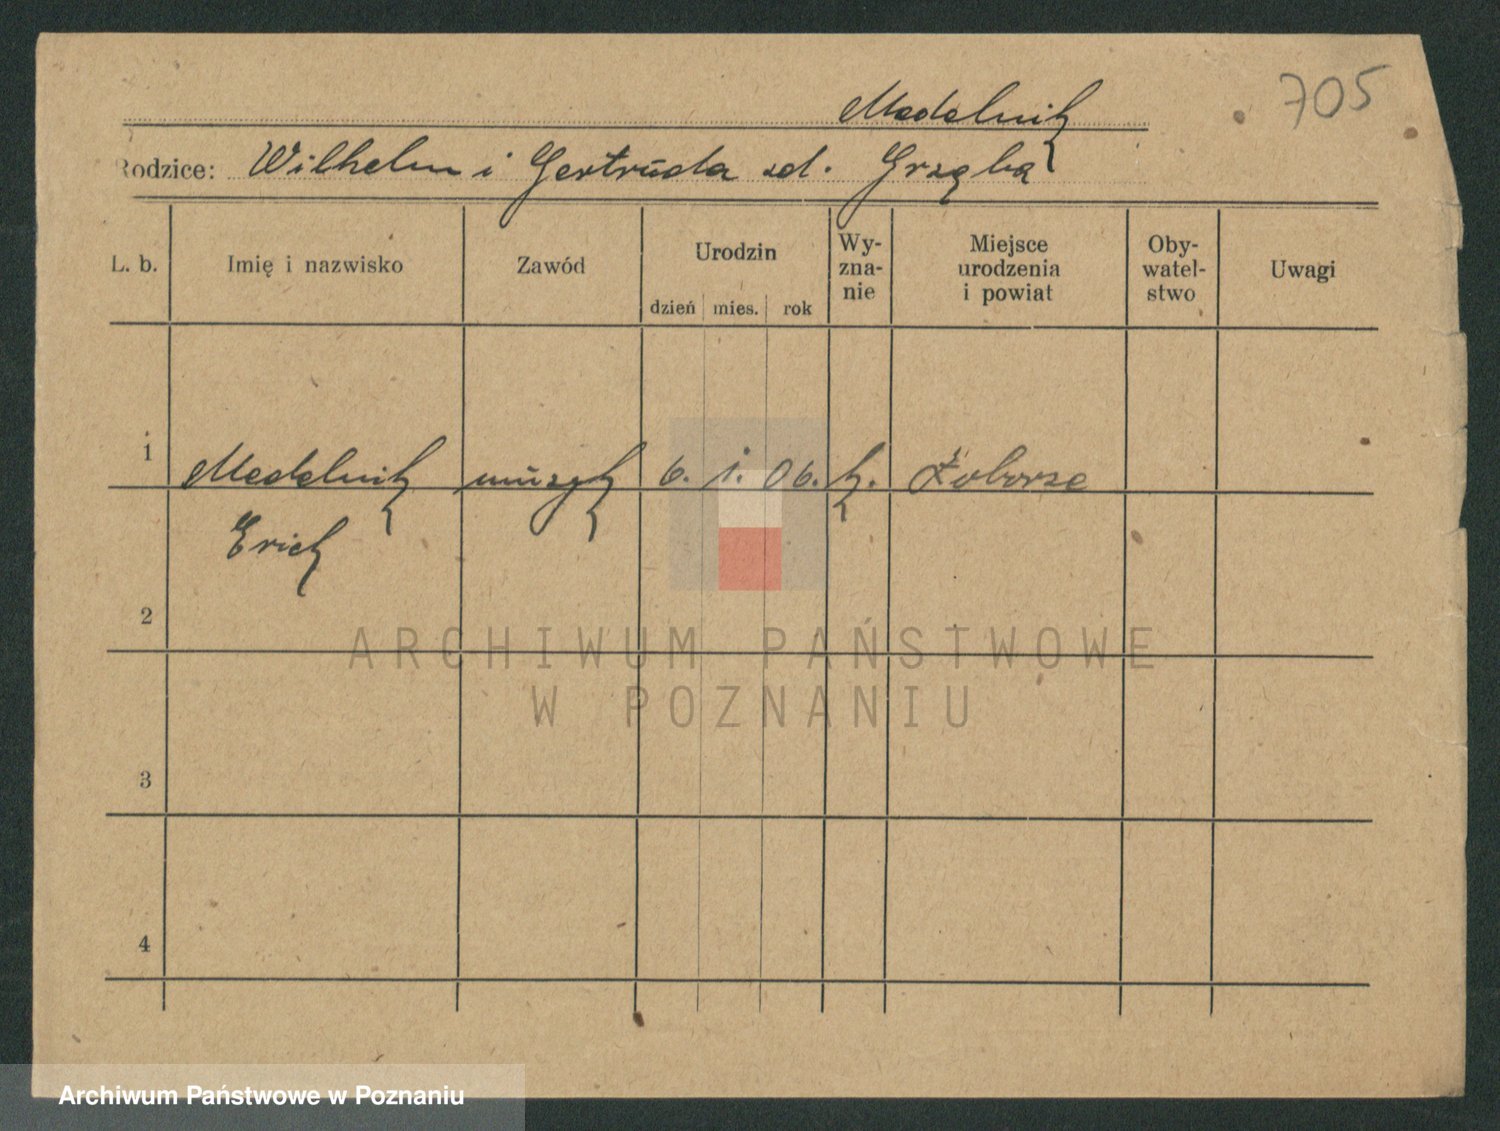 705
Medelnik
Rodzice: Wilhelm i Gertruda zd. Grzęba
L. b. Imię i nazwisko Zawód Urodzin dzień mies. rok Wy-zna-nie Miejsce urodzenia i powiat Oby-watel-stwo Uwagi
1 Medelnik muzyk 6. 1. 06. k. Zaborze
Erich
2
3
4
ARCHIWUM PAŃSTWOWE
W POZNANIU
Archiwum Państwowe w Poznaniu